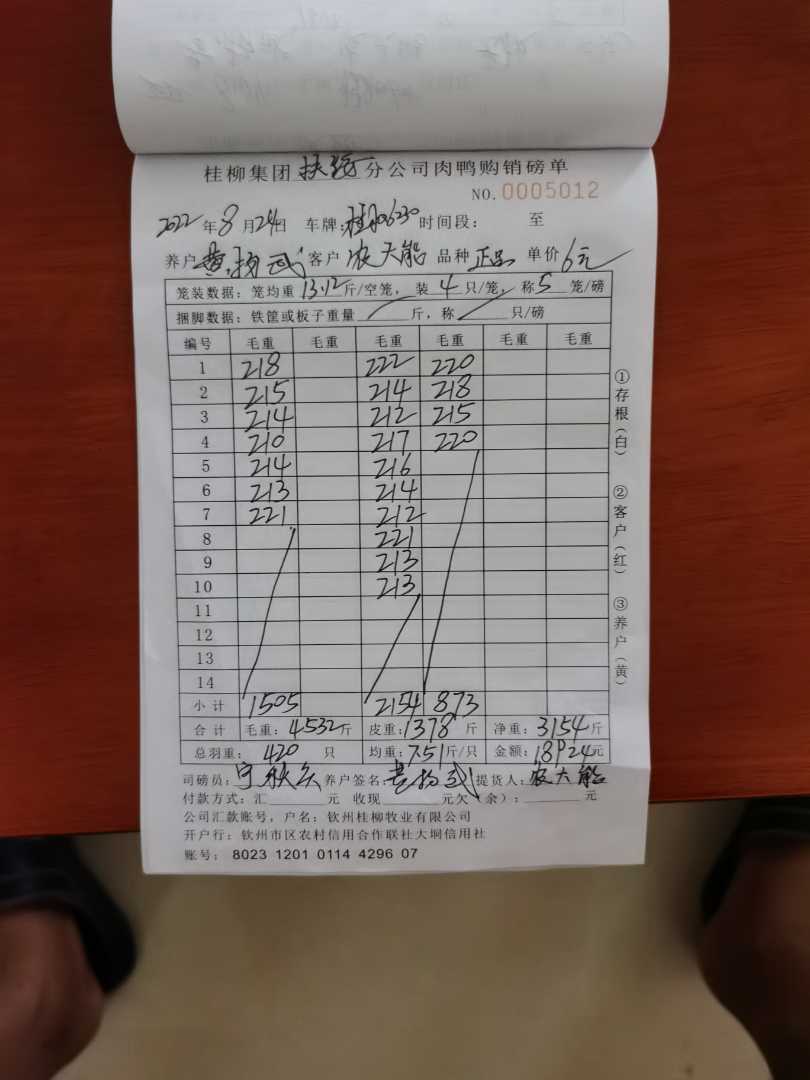 桂柳集团扶绥分公司肉鸭购销磅单
NO.0005012
2022年8月24日 车牌: 06230 时间段: 至
养户 黄 武 客户 农大能 品种 正品 单价 6元
笼装数据: 笼均重 13.12 斤/空笼, 装 4 只/笼, 称 5 笼/磅
捆脚数据: 铁筐或板子重量 斤, 称 只/磅
编号 毛重 毛重 毛重 毛重 毛重 毛重
1 218 222 220
2 215 214 218
3 214 212 215
4 210 217 220
5 214 216
6 213 214
7 221 212
8 221
9 213
10 213
11
12
13
14
小计 1505 2154 873
合计 毛重: 4532斤 皮重: 1378 斤 净重: 3154斤
总羽重: 420 只 均重: 7.51斤/只 金额: 18924元
司磅员: 养户签名: 提货人: 农大能
付款方式: 汇 元 收现 元欠(余): 元
公司汇款账号, 户名: 钦州桂柳牧业有限公司
开户行: 钦州市区农村信用合作联社大垌信用社
账号: 8023 1201 0114 4296 07
①存根(白)
②客户(红)
③养户(黄)